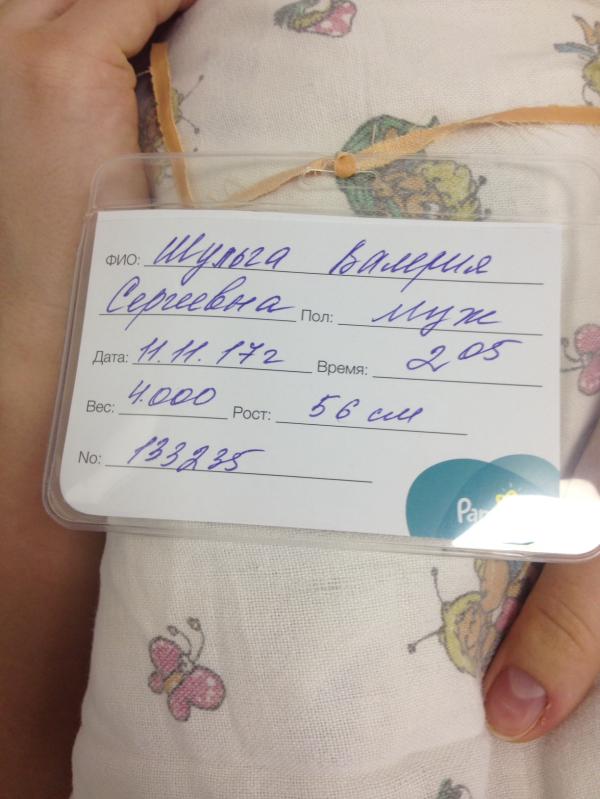 ФИО: Шульга Валерия
Сергеевна Пол: муж
Дата: 11.11.17г Время: 2 05
Вес: 4.000 Рост: 56 см
No: 133235